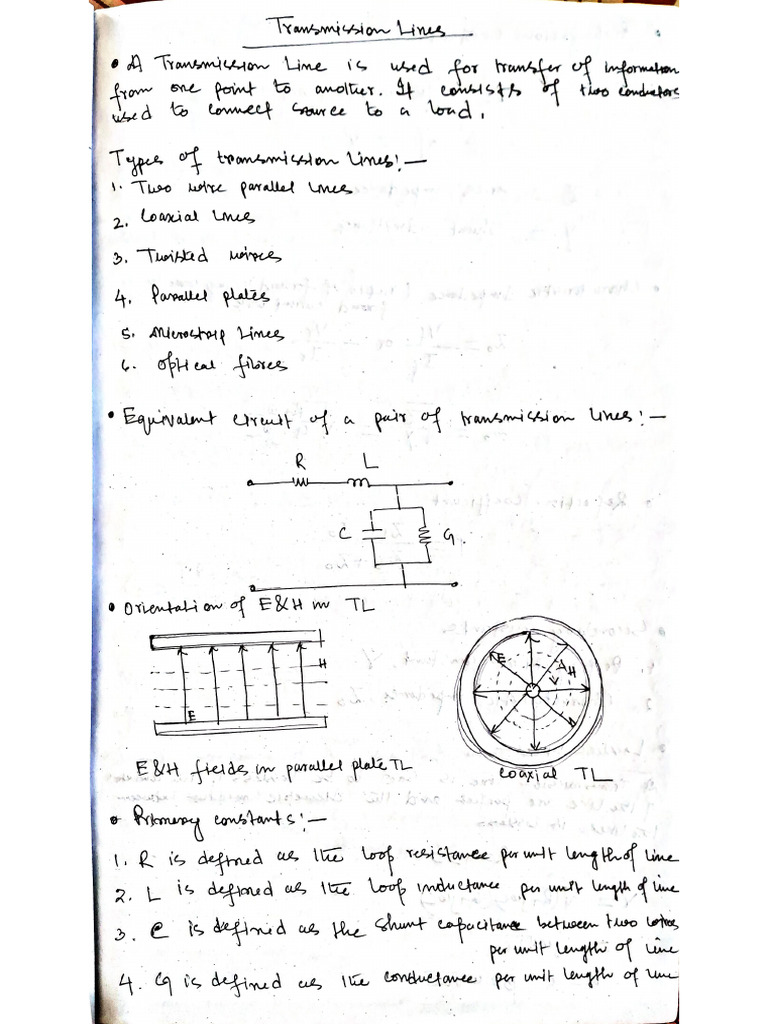 Transmission Lines
• A Transmission Line is used for transfer of information
from one point to another. It consists of two conductors
used to connect source to a load.
Types of transmission lines:—
1. Two wire parallel lines
2. Coaxial lines
3. Twisted wires
4. Parallel plates
5. Microstrip Lines
6. Optical fibres
• Equivalent circuit of a pair of transmission lines:—
R L
C G
• Orientation of E&H in TL
H
E
E
H
E&H fields in parallel plate TL
coaxial TL
• Primary constants:—
1. R is defined as the loop resistance per unit length of line
2. L is defined as the loop inductance per unit length of line
3. C is defined as the shunt capacitance between two wires
per unit length of line
4. G is defined as the conductance per unit length of line